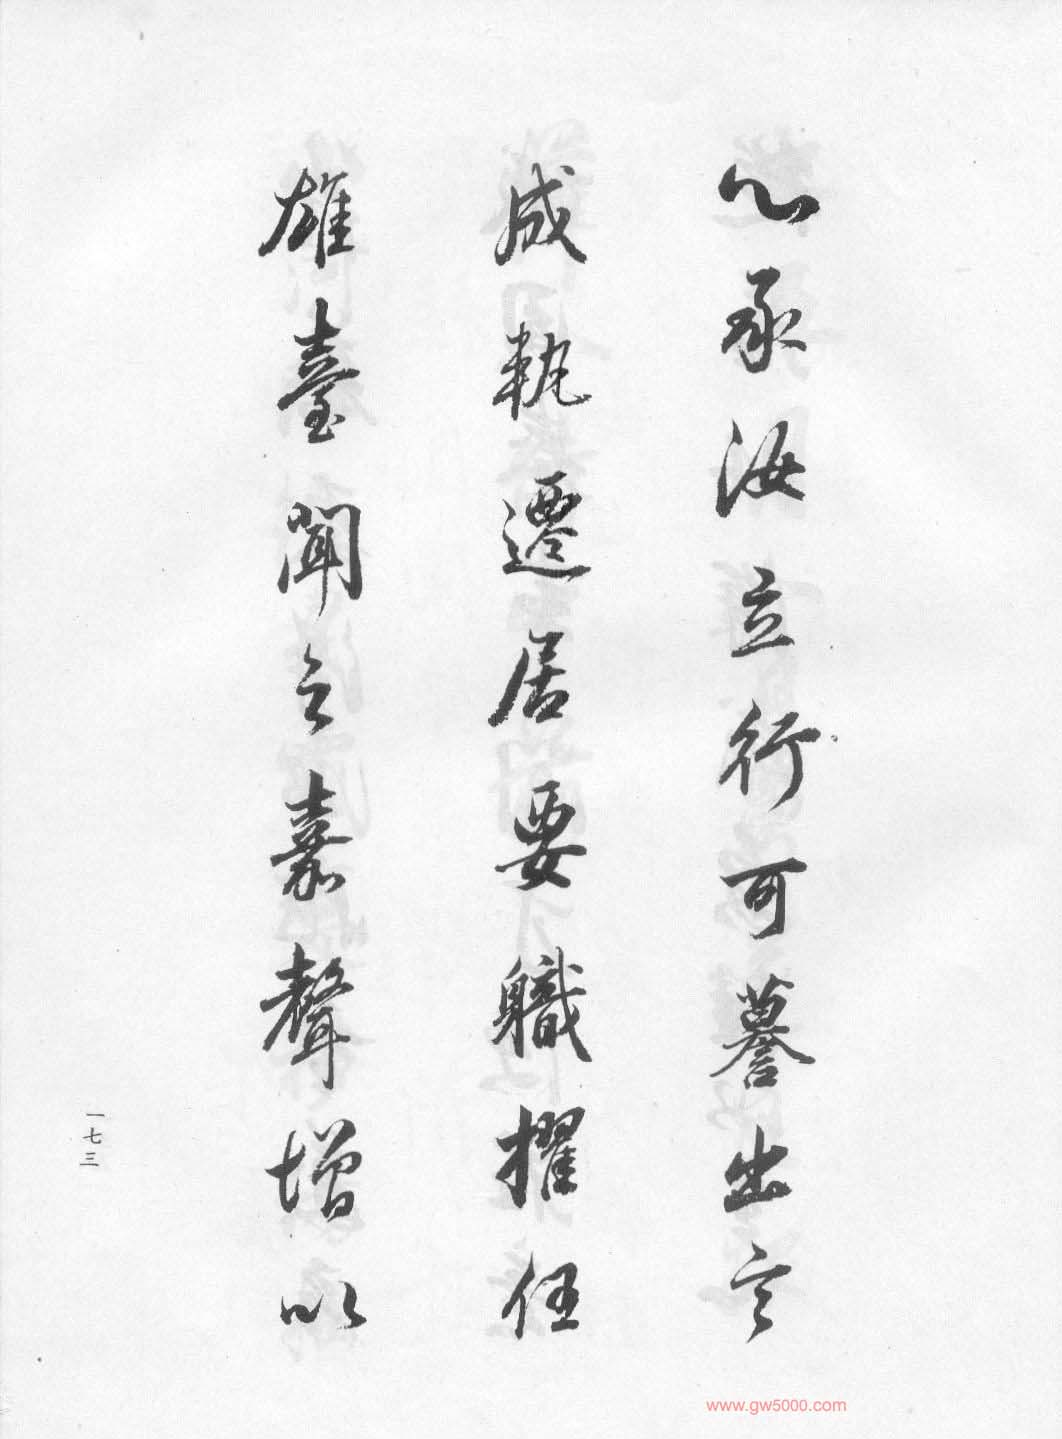 心承汝立行可譽出言
成軌遷居要職擢任
雄臺聞之嘉聲增以
一七三
www.gw5000.com